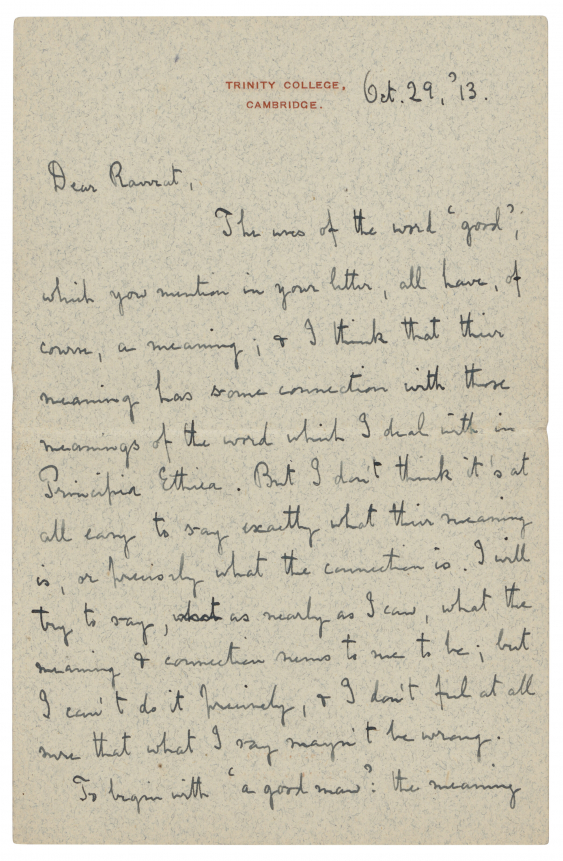 TRINITY COLLEGE,
CAMBRIDGE.
Oct. 29, '13.
Dear Raverat,
The uses of the word "good",
which you mention in your letter, all have, of
course, a meaning; & I think that their
meaning has some connection with those
meanings of the word which I deal with in
Principia Ethica. But I don't think it's at
all easy to say exactly what their meaning
is, or precisely what the connection is. I will
try to say, as nearly as I can, what the
meaning & connection seems to me to be; but
I can't do it precisely, & I don't feel at all
sure that what I say mayn't be wrong.
To begin with "a good man": the meaning